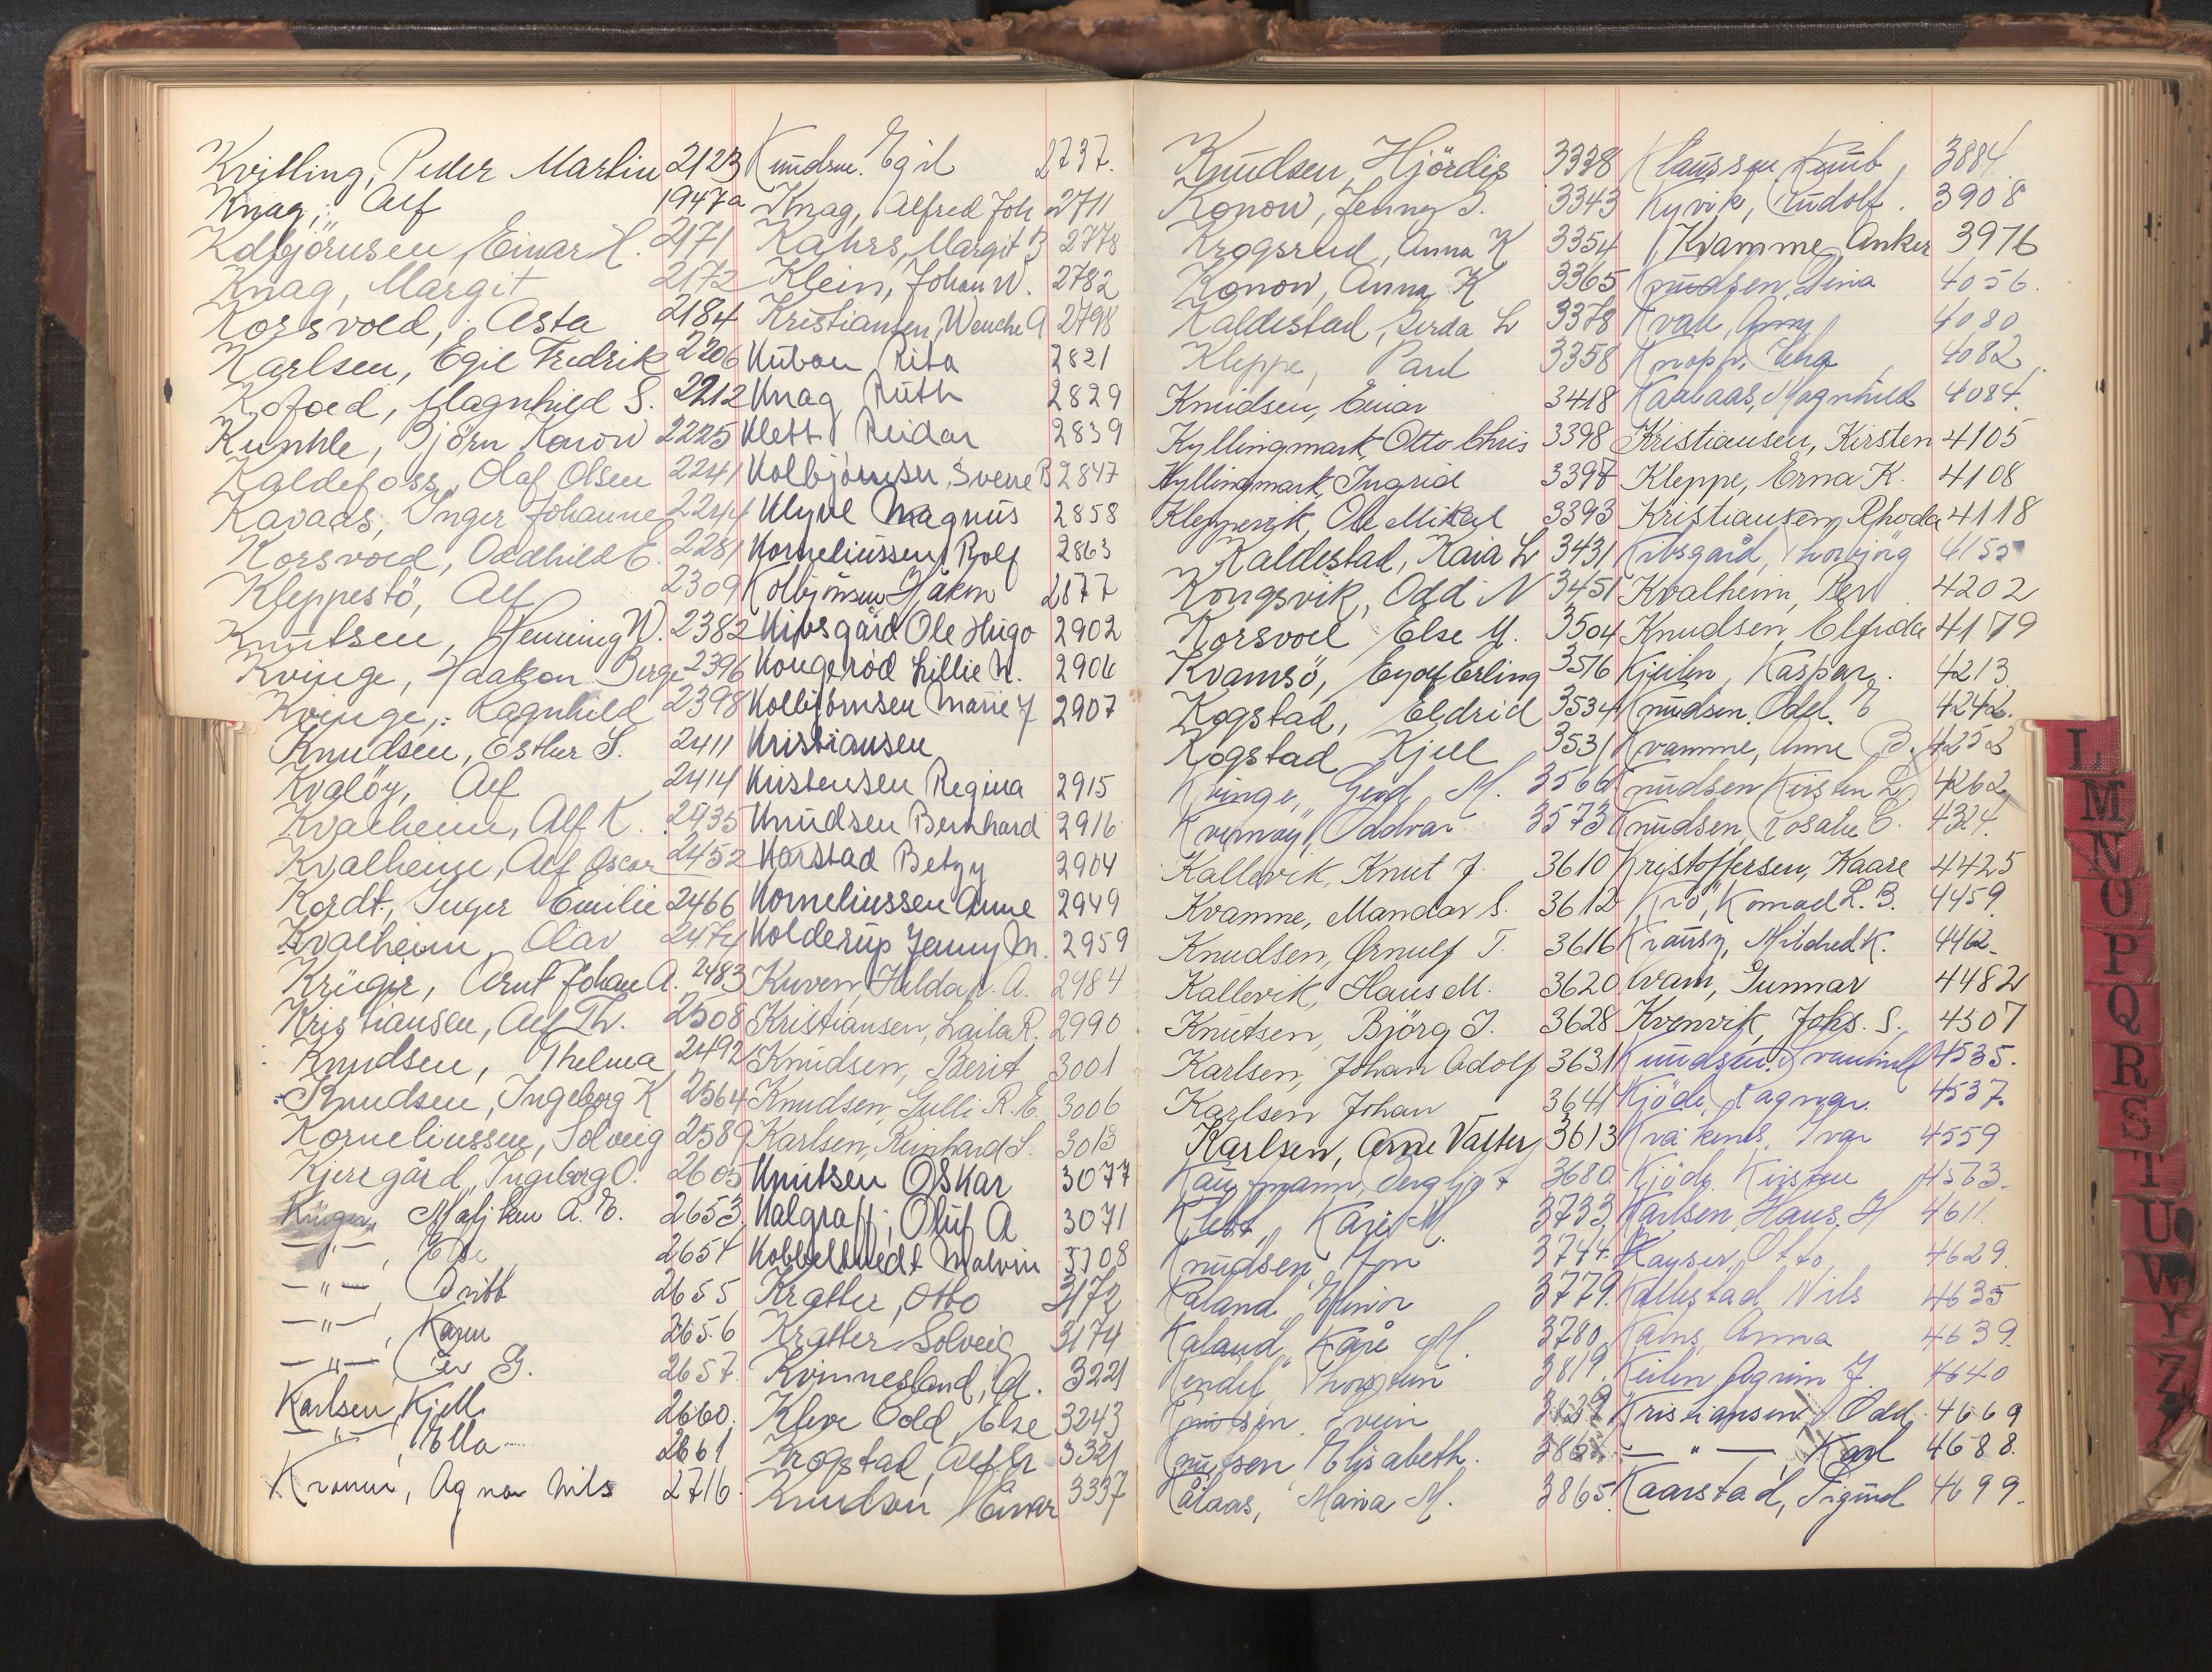 Kvitling, Peder Martin 2123
Knag, Alf 1947a
Kolbjörnsen, Einar H. 2171
Knag, Margit 2172
Korsvold, Asta 2184
Karlsen, Egil Fredrik 2206
Kofoed, Magnhild S. 2212
Kunhle, Björn Konow 2225
Kaldefoss, Olaf Olsen 2241
Kavaas, Inger Johanne 2244
Korsvold, Oddhild E. 2281
Kleppestö, Alf 2309
Knutsen, Henning W. 2382
Kvinge, Haakon Berge 2396
Kvinge, Ragnhild 2398
Knudsen, Esther S. 2411
Kvalöy, Alf 2414
Kvalheim, Alf K. 2435
Kvalheim, Alf Oscar 2452
Kordt, Inger Emilie 2466
Kvalheim, Olav 2474
Krüger, Arnt Johan A. 2483
Kristiansen, Alf Th. 2508
Knudsen, Thelma 2492
Knudsen, Ingeborg K 2564
Korneliussen, Solveig 2589
Kjerrgård, Ingeborg O. 2605
Krüger, A. E. 2653
—"—, Else 2654
—"—, Britt 2655
—"—, Karen 2656
—"— G. 2657
Karlsen, Kjell 2660
—"—, Ella 2661
Agnar Nils 2716
Knudsen. Egil 2737.
Knag, Alfred Joh 2711
Kahrs, Margit B 2778
Klein, Johan W. 2782
Kristiansen, Wenche A 2798
Kubon Rita 2821
Knag Ruth 2829
Klett Reidar 2839
Kolbjörnsen, Sverre B 2847
Klyve Magnus 2858
Korneliussen Rolf 2863
Kolbjörnsen Håkon 2877
Kibsgård Ole Hugo 2902
Kongeröd Lillie N. 2906
Kolbjörnsen Marie J 2907
Kristiansen
Kristensen Regina 2915
Knudsen Bernhard 2916
Karstad Betzy 2904
Korneliussen Anne 2949
Kolderup Jenny M. 2959
Kuven, Hilda A. 2984
Kristiansen, Laila R. 2990
Knudsen, Berit 3001
Knudsen, Gulli R. E. 3006
Karlsen, Reinhard S. 3013
Knutsen Oskar 3077
Kalgraff, Oluf A 3071
Kobbeltvedt Malvin 3108
Kratler, Otto 3172
Kratler Solveig 3174
Kvinnesland, A. 3221
Kleve Odd, Else 3243
Krogstad, Alf Chr 3321
Knudsen Einar 3337
Knudsen, Hjördis 3338
Konow, Jenny S. 3343
Krogsrud, Anna K 3354
Konow, Anna K 3365
Kaldestad, Gerda L 3378
Kleppe, Paul 3358
Knudsen, Einar 3418
Kyllingmark, Otto Chris 3398
Kyllingmark, Ingrid 3397
Kleppevik, Ole Mikal 3393
Kaldestad, Kaia L 3431
Kongsvik, Odd N 3451
Korsvoll Else M. 3504
Kvamsö, Eyolf Erling 3516
Kogstad, Eldrid 3534
Kogstad, Kjell 3531
Kvinge, Gerd M. 3566
Kvernöy, Oddvar 3573
Kallevik, Knut J. 3610
Kvamme, Mandar S. 3612
Knudsen, Ørnulf T. 3616
Kallevik, Hans M. 3620
Knutsen, Björg J. 3628
Karlsen, Johan Adolf 3631
Karlsen Johan 3641
Karlsen, Arne Valter 3613
Kaufmann, Bergljot 3680
Klett, Kari M. 3733
Knudsen, Jon 3744
Kaland 3779.
Kaland, Kåre M. 3780
Thorstein 3819
Knutsen, Svein
Knutsen Elisabeth.
Kålaas, Maria M. 3865
Claussen, Knut 3884
Kyvik, Rudolf. 3908
Kvamme, Anker 3976
Knudsen, Lina 4056.
Kvale, Anny 4080
4082
Kaalaas, Magnhild 4084
Kristiansen, Kirsten 4105
Kleppe, Erna K. 4108
Kristiansen, Rhoda 4118
Kibsgård, Thorbjörg 4155
Kvalheim, Per 4202
Knudsen, Elfrida 4179
Kjeilen, Kaspar. 4213
Knudsen. Odd. E 4242.
Kvamme, Anne B. 4252
Knudsen Kirsten L. 4262
Knudsen, Rosalie C. 4324.
Kristoffersen, Kaare 4425
Krö, Konrad L. B. 4459
Krausz, Mildred K. 4462
Kvam, Gunnar 4482
Kvenvik, Johs. S. 4507
Knudsen, 4535.
Kjöde, Ragnar. 4537
Kråkenes, Ivar 4559
Kjöde, Kirsten 4563
Karlsen, Hans H 4611
Kayser, Otto 4629
Kallestad Nils 4635
Kahrs, Anna 4639.
Keilen J. 4640
Kristiansen, Odd 4669
—"— Karl 4688.
Kaarstad, Sigurd 4699.
L
M
N
O
P
Q
R
S
T
U
W
Y
Z